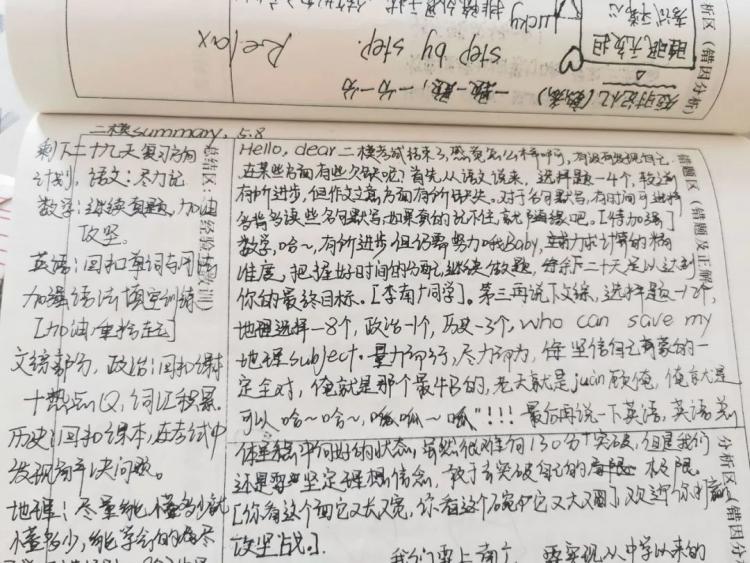 析区(错因分析)
睡眠无敌担
Lucky
Relax
step by step.
一题一题,一分一分
二模summary, 5.8
剩下二十九天复习方向
计划, 语文:尽力记
数学:继续真题,加油
攻坚.
英语:回扣单词与用法
加强语法填空训练
[加油,重拾在线]
文综部分, 政治:回扣课本
十热点, 词汇积累.
历史:回扣课本,在考试中
发现解决问题.
地理:尽量能懂多少就
懂多少, 能学会的尽
总结区(经验教训)
Hello, dear 二模考试结束了,感觉怎么样啊,有没有发现自己
在某些方面有些欠缺呢?首先,从语文说来, 选择题-4个, 较
有所进步, 但作文立意方面有所缺失。对于名句默写,有时间可
多背多读些名句默写,如果真的记不住,就 吧。[待加强]
数学, 哈~, 有所进步但仍需努力哦Baby, 力求计算的精
准度, 把握好时间的分配, 继续做题, 剩余二十天足以达到
你的最终目标。[李南 同学]。第三再说下文综, 选择题-12个,
地理选择-8个, 政治-1个, 历史-3个, who can save my
地理subject. 量力而行,尽力而为, 坚信自己蒙的一
定全对, 俺就是那个最牛的, 老天就是 眷顾俺, 俺就是
可以 哈~哈~, 呱呱~呱"!!! 最后再说一下英语, 英语总
体呈稳中向好的状态, 虽然很难向130分+突破, 但是我们
还是要坚定理想信念, 敢于去突破自己的极限.
[你看这个面它又长又宽, 你看这个碗它又大又圆], 欢迎你们
攻坚战].
错题区(错题及正解)
分析区(错因分
我们要上南, 要实现从中学以来的